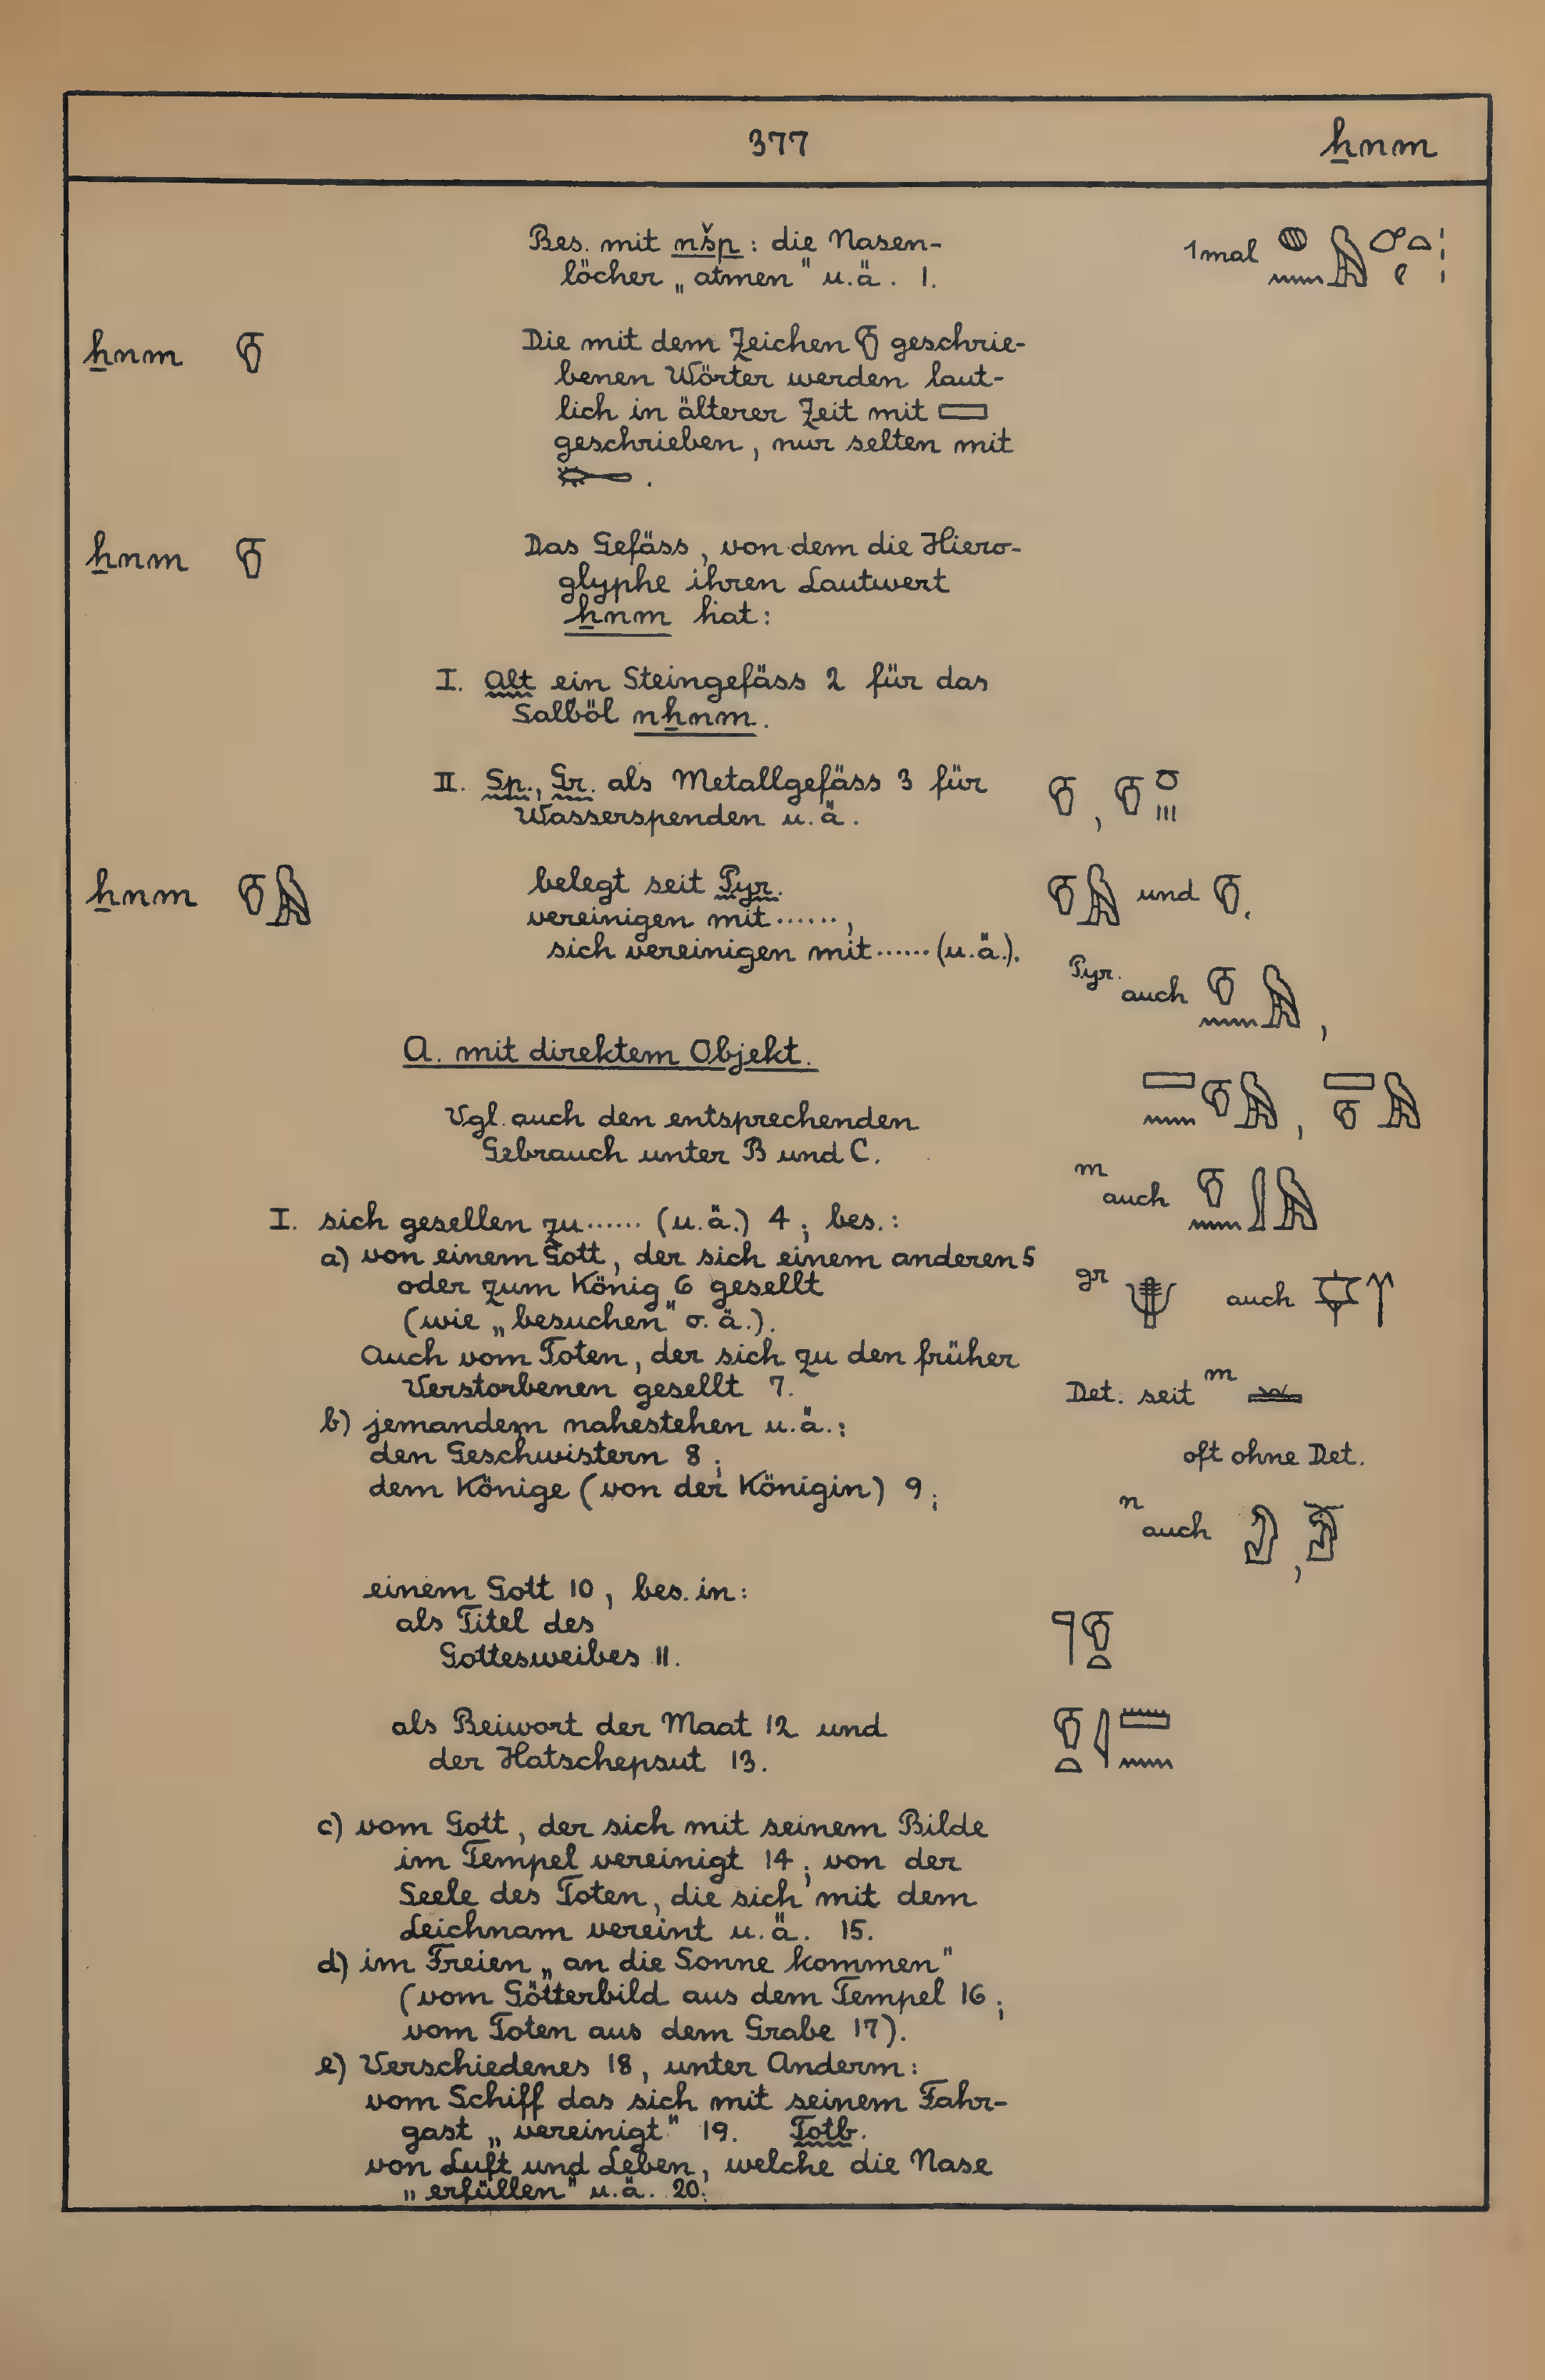 377 ẖnm
Bes. mit nšp : die Nasen-
löcher „atmen" u.ä. 1. 1mal 𓐍𓈖𓅓
ẖnm 𓎸 Die mit dem Zeichen 𓎸 geschrie-
benen Wörter werden laut-
lich in älterer Zeit mit 𓈙
geschrieben, nur selten mit
𓄡 .
ẖnm 𓎸 Das Gefäss, von dem die Hiero-
glyphe ihren Lautwert
ẖnm hat:
I. Alt ein Steingefäss 2 für das
Salböl nẖnm.
II. Sp., Gr. als Metallgefäss 3 für 𓎸, 𓎸𓏌𓏥
Wasserspenden u.ä.
ẖnm 𓎸𓅓 belegt seit Pyr. 𓎸𓅓 und 𓎸.
vereinigen mit ......,
sich vereinigen mit ...... (u.ä.).
Pyr. auch 𓎸𓈖𓅓,
A. mit direktem Objekt.
𓈙𓈖𓎸𓅓, 𓈙𓎸𓅓
Vgl. auch den entsprechenden
Gebrauch unter B und C.
m auch 𓎸𓈖𓅓
I. sich gesellen zu ...... (u.ä.) 4; bes.:
a) von einem Gott, der sich einem anderen 5
oder zum König 6 gesellt
(wie „besuchen" o.ä.).
gr auch
Auch vom Toten, der sich zu den früher
Verstorbenen gesellt 7.
Det. seit m 𓏛
b) jemandem nahestehen u.ä.:
den Geschwistern 8;
oft ohne Det.
dem Könige (von der Königin) 9;
n auch ,
einem Gott 10, bes. in:
als Titel des 𓊹𓎸𓏏
Gottesweibes 11.
als Beiwort der Maat 12 und 𓎸𓏏𓇋𓏠𓈖
der Hatschepsut 13.
c) vom Gott, der sich mit seinem Bilde
im Tempel vereinigt 14; von der
Seele des Toten, die sich mit dem
Leichnam vereint u.ä. 15.
d) im Freien „an die Sonne kommen"
(vom Götterbild aus dem Tempel 16;
vom Toten aus dem Grabe 17).
e) Verschiedenes 18, unter Anderm:
vom Schiff das sich mit seinem Fahr-
gast „vereinigt" 19. Totb.
von Luft und Leben, welche die Nase
„erfüllen" u.ä. 20.